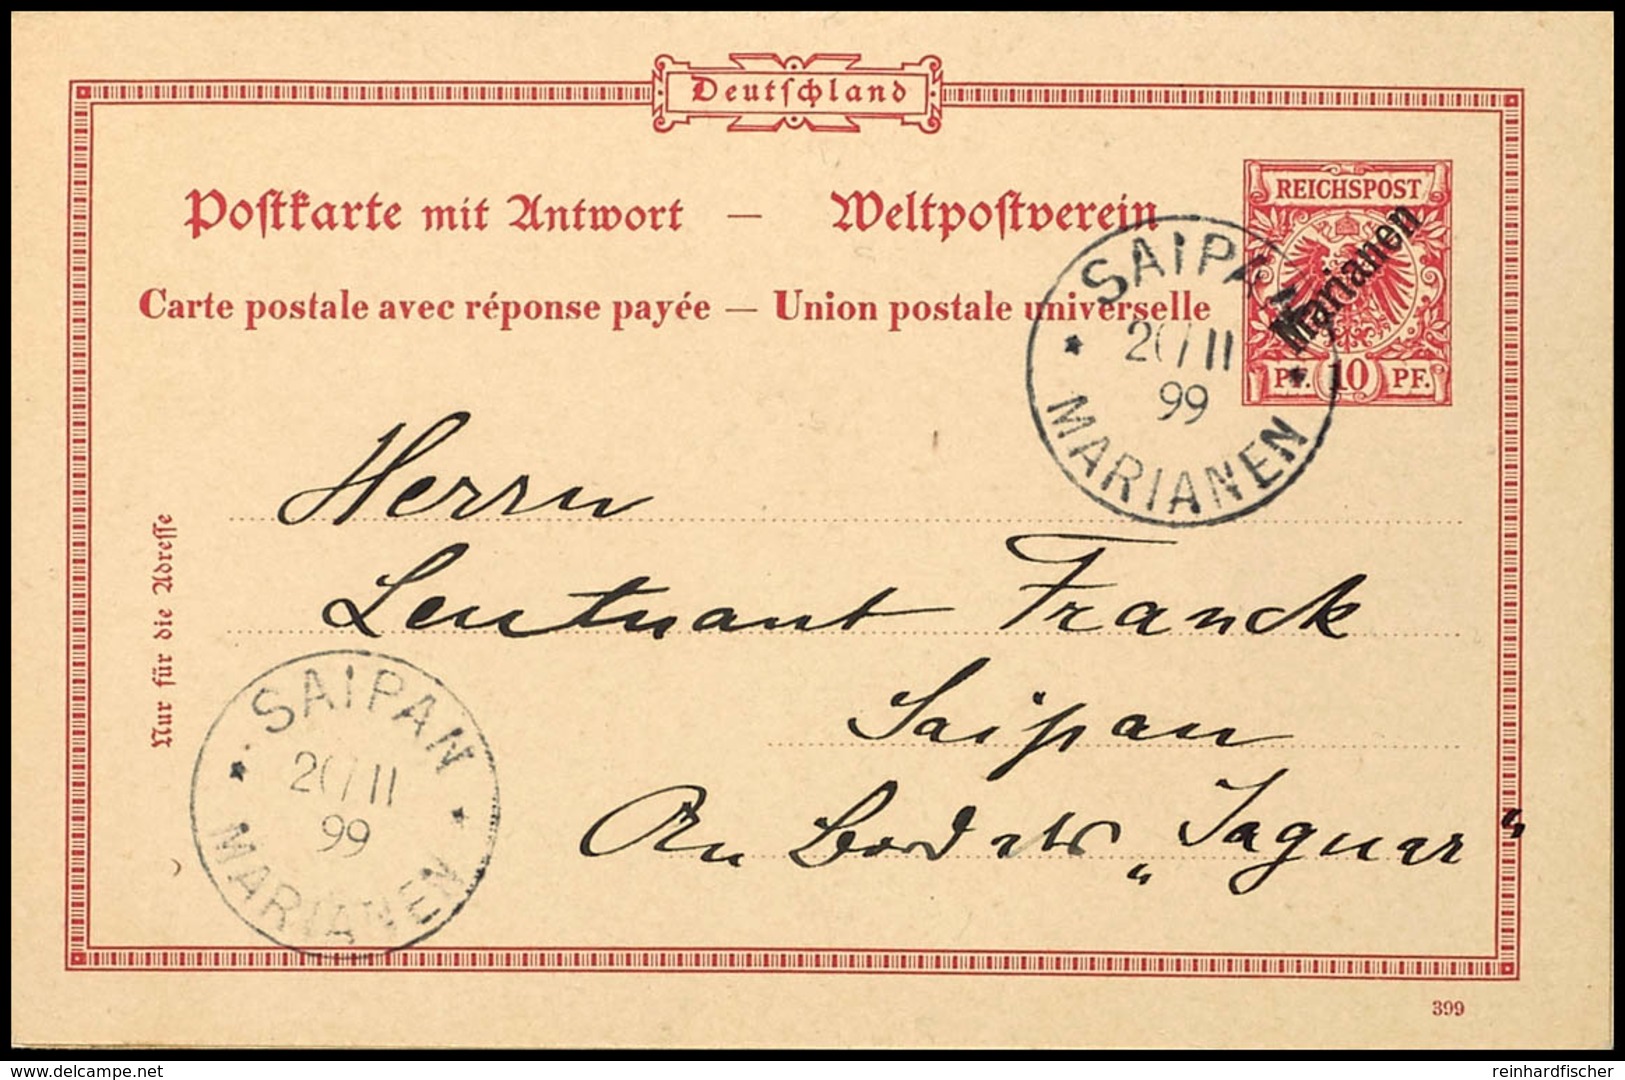 Deutschland
Postkarte mit Antwort — Weltpostverein
Carte postale avec réponse payée — Union postale universelle
REICHSPOST
Marianen
PF. 10 PF.
SAIPAN
20/11
99
MARIANEN
Nur für die Adresse
Herrn
Leutnant Franck
Saipan
An Bord „Jaguar“
SAIPAN
20/11
99
MARIANEN
399
www.delcampe.net
reinhardfischer